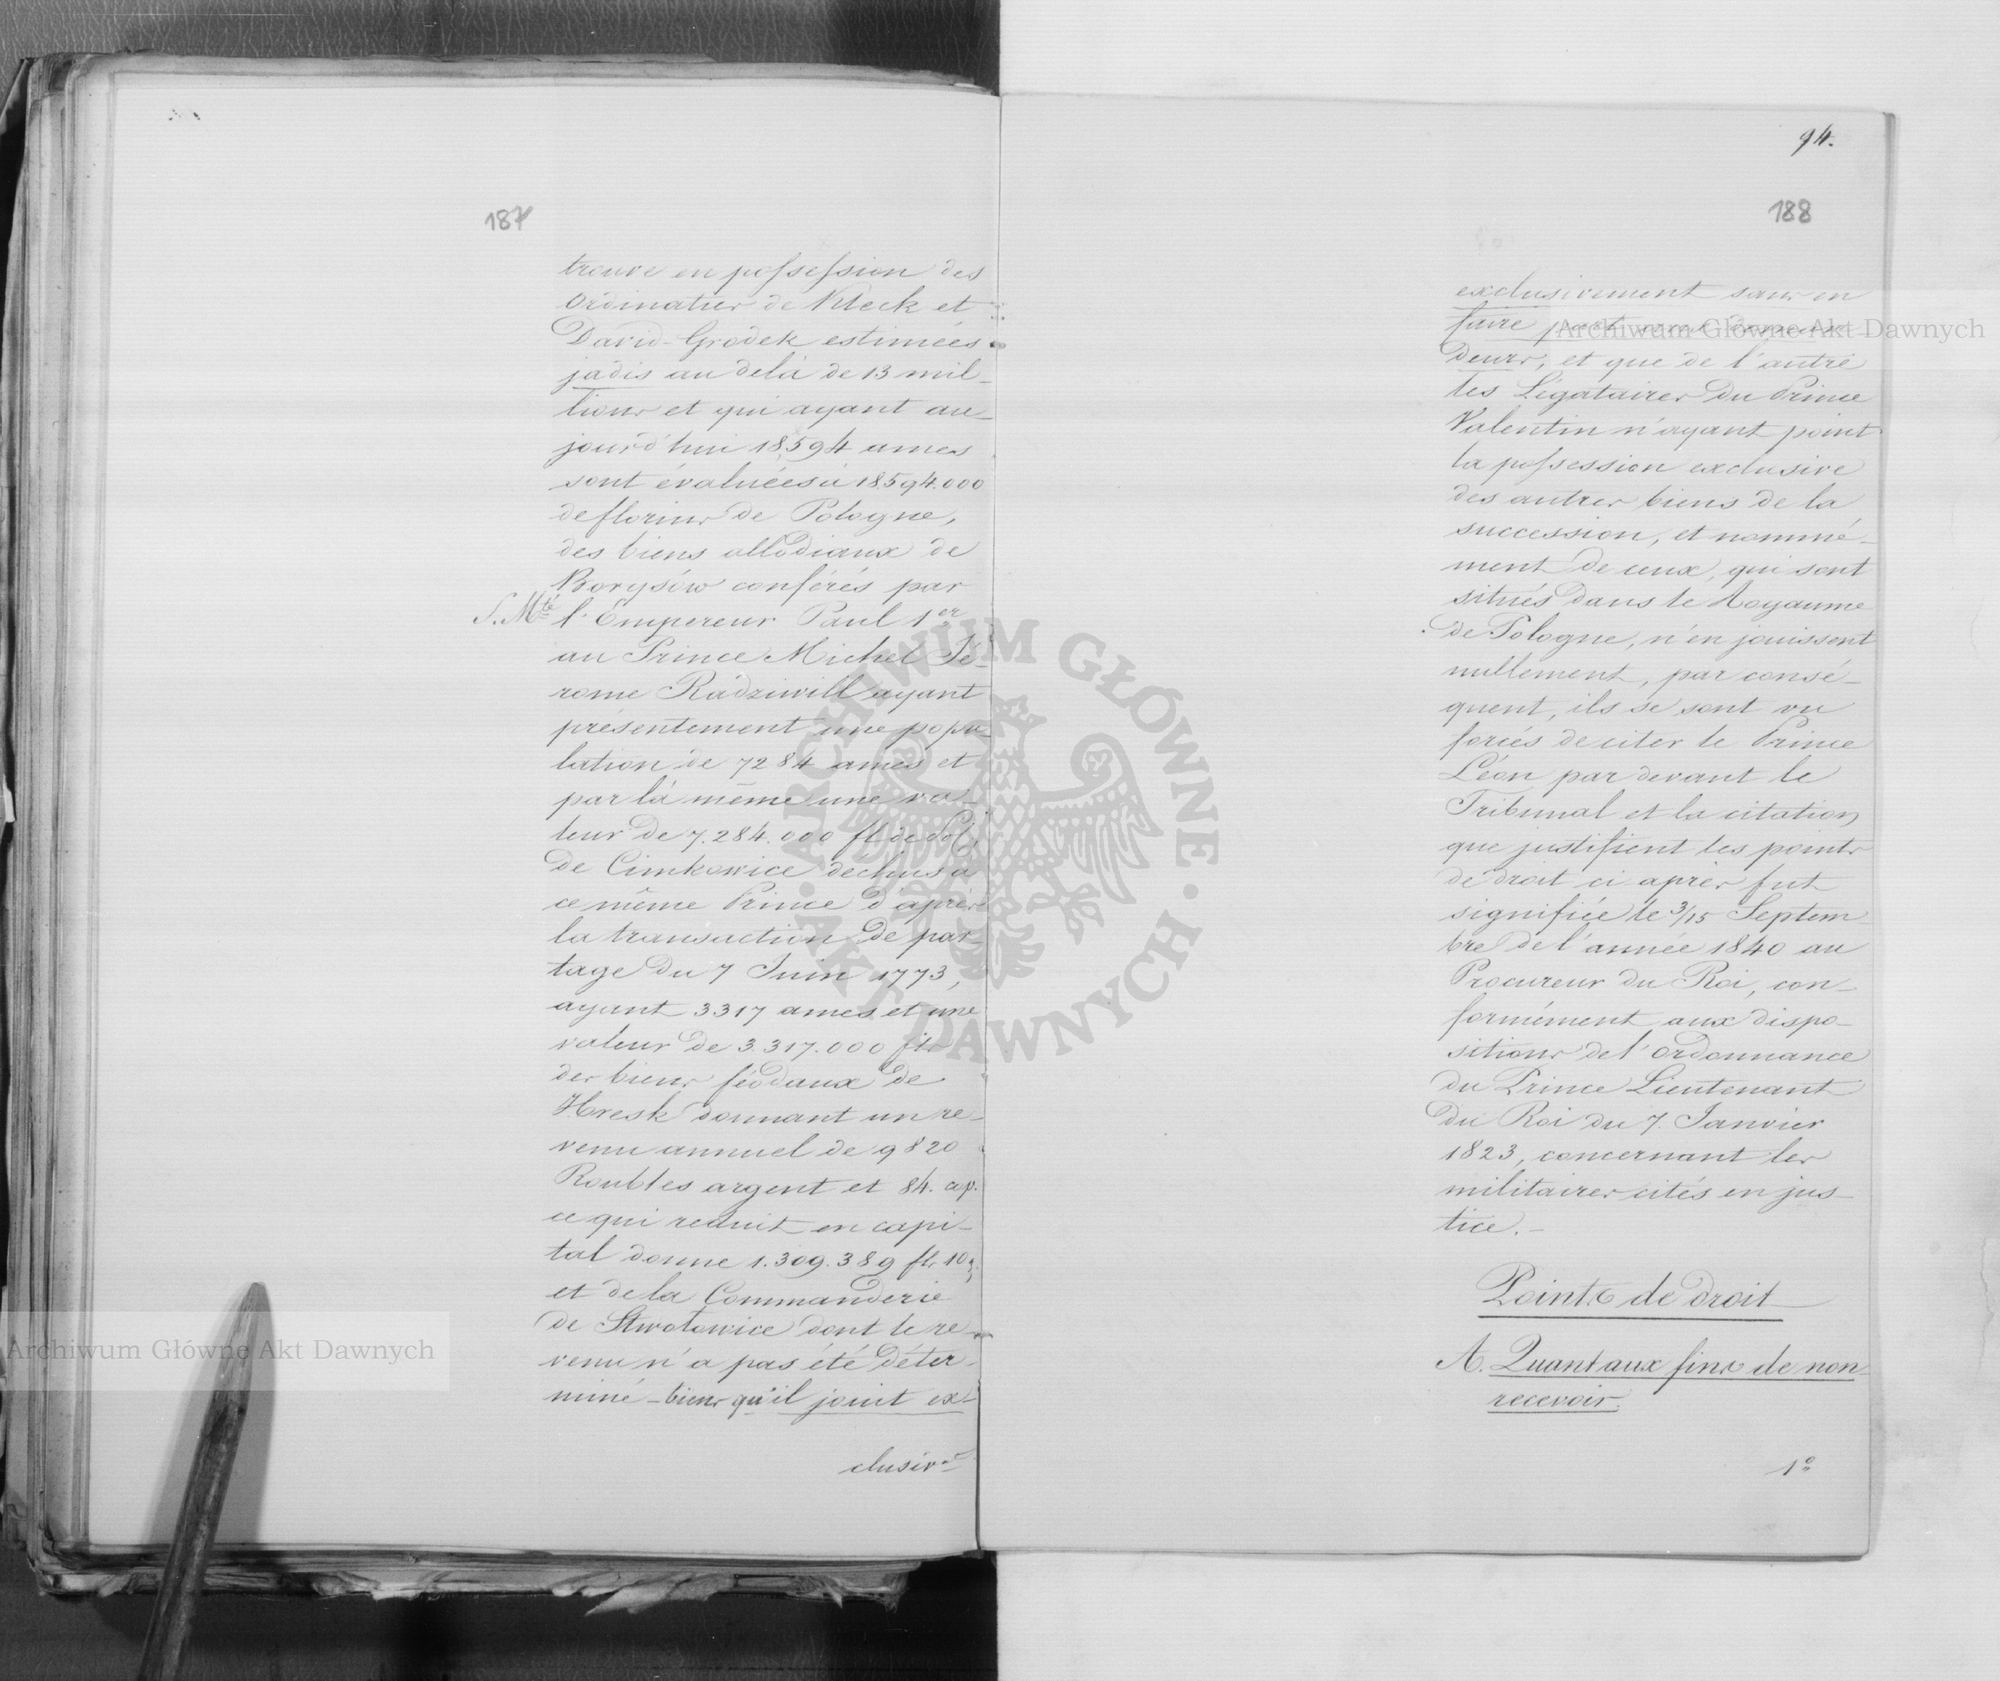 187
trouve en possession des
Ordinaties de Kleck et
David-Grodek estimées
jadis au delà de 13 mil-
lions et qui ayant au-
jourd'hui 18,594 ames
sont évaluées à 18.594.000
de florins de Pologne,
des biens allodiaux de
Borysów conférés par
S. Mté l'Empereur Paul 1er
au Prince Michel Jé-
rome Radziwill ayant
présentement une popu-
lation de 7284 ames et
par là même une va-
leur de 7.284.000 fl de pol,
de Cimkowice déchus à
ce même Prince d'après
la transaction de par-
tage du 7 Juin 1773,
ayant 3317 ames et une
valeur de 3.317.000 fls
des biens féodaux de
Hresk donnant un re-
venu annuel de 9820
Roubles argent et 84. cop.
ce qui reduit en capi-
tal donne 1.309.389 fls 10 g.
et de la Commanderie
de Stwolowice dont le re-
venu n'a pas été déter-
miné - biens qu'il jouit ex-
clusivt
94.
188
exclusivement sans en
faire part aux
deurs, et que de l'autre
les Légataires du Prince
Valentin n'ayant point
la possession exclusive
des autres biens de la
succession, et nommé-
ment de ceux, qui sont
situés dans le Royaume
de Pologne, n'en jouissent
nullement, par consé-
quent, ils se sont vu
forcés de citer le Prince
Léon par devant le
Tribunal et la citation
que justifient les points
de droit ci après fut
signifiée le 3/15 Septem-
bre de l'année 1840 au
Procureur du Roi, con-
formément aux dispo-
sitions de l'ordonnance
du Prince Lieutenant
du Roi du 7. Janvier
1823, concernant les
militaires cités en jus-
tice. -
Points de droit
A. Quant aux fins de non-
recevoir.
1o
Archiwum Główne Akt Dawnych
Archiwum Główne Akt Dawnych
ARCHIWUM GŁÓWNE AKT DAWNYCH